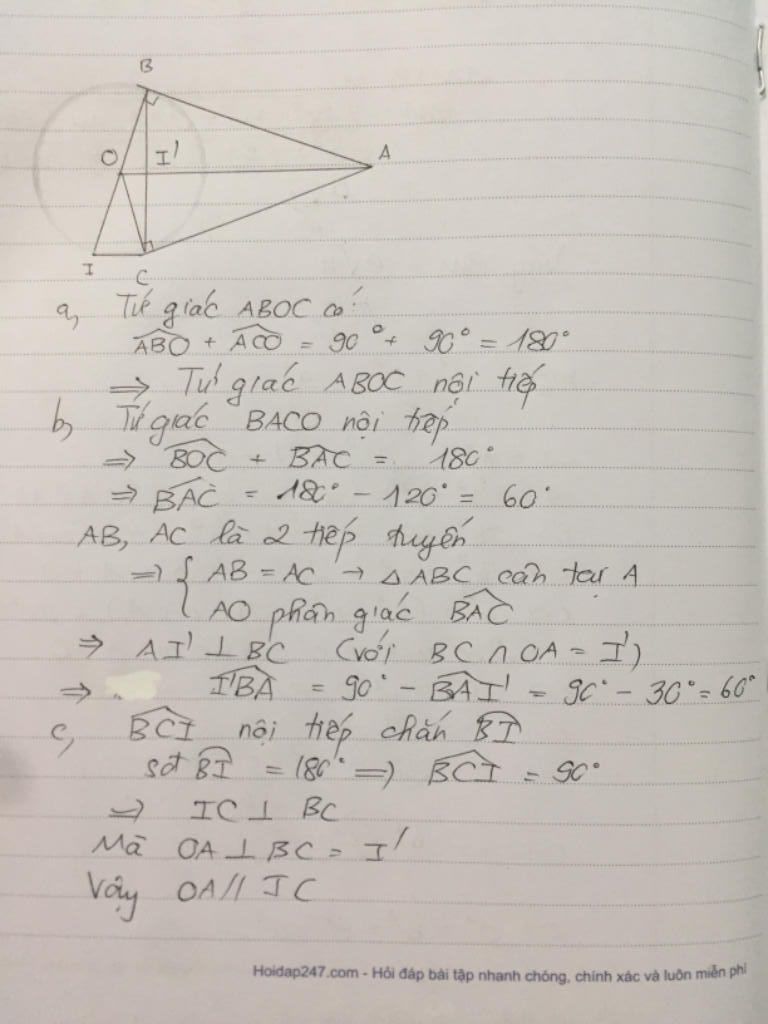 B
O
I'
A
I
C
a, Tứ giác ABOC có:
ABO + ACO = 90° + 90° = 180°
=> Tứ giác ABOC nội tiếp
b, Tứ giác BACO nội tiếp
=> BOC + BAC = 180°
=> BAC = 180° - 120° = 60°
AB, AC là 2 tiếp tuyến
=> { AB = AC → △ABC cân tại A
AO phân giác BAC
=> AI' ⊥ BC (với BC ∩ OA = I')
=> I'BA = 90° - BAI' = 90° - 30° = 60°
c, BCI nội tiếp chắn BI
sđ BI = 180° => BCI = 90°
=> IC ⊥ BC
Mà OA ⊥ BC = I'
Vậy OA // IC
Hoidap247.com - Hỏi đáp bài tập nhanh chóng, chính xác và luôn miễn phí